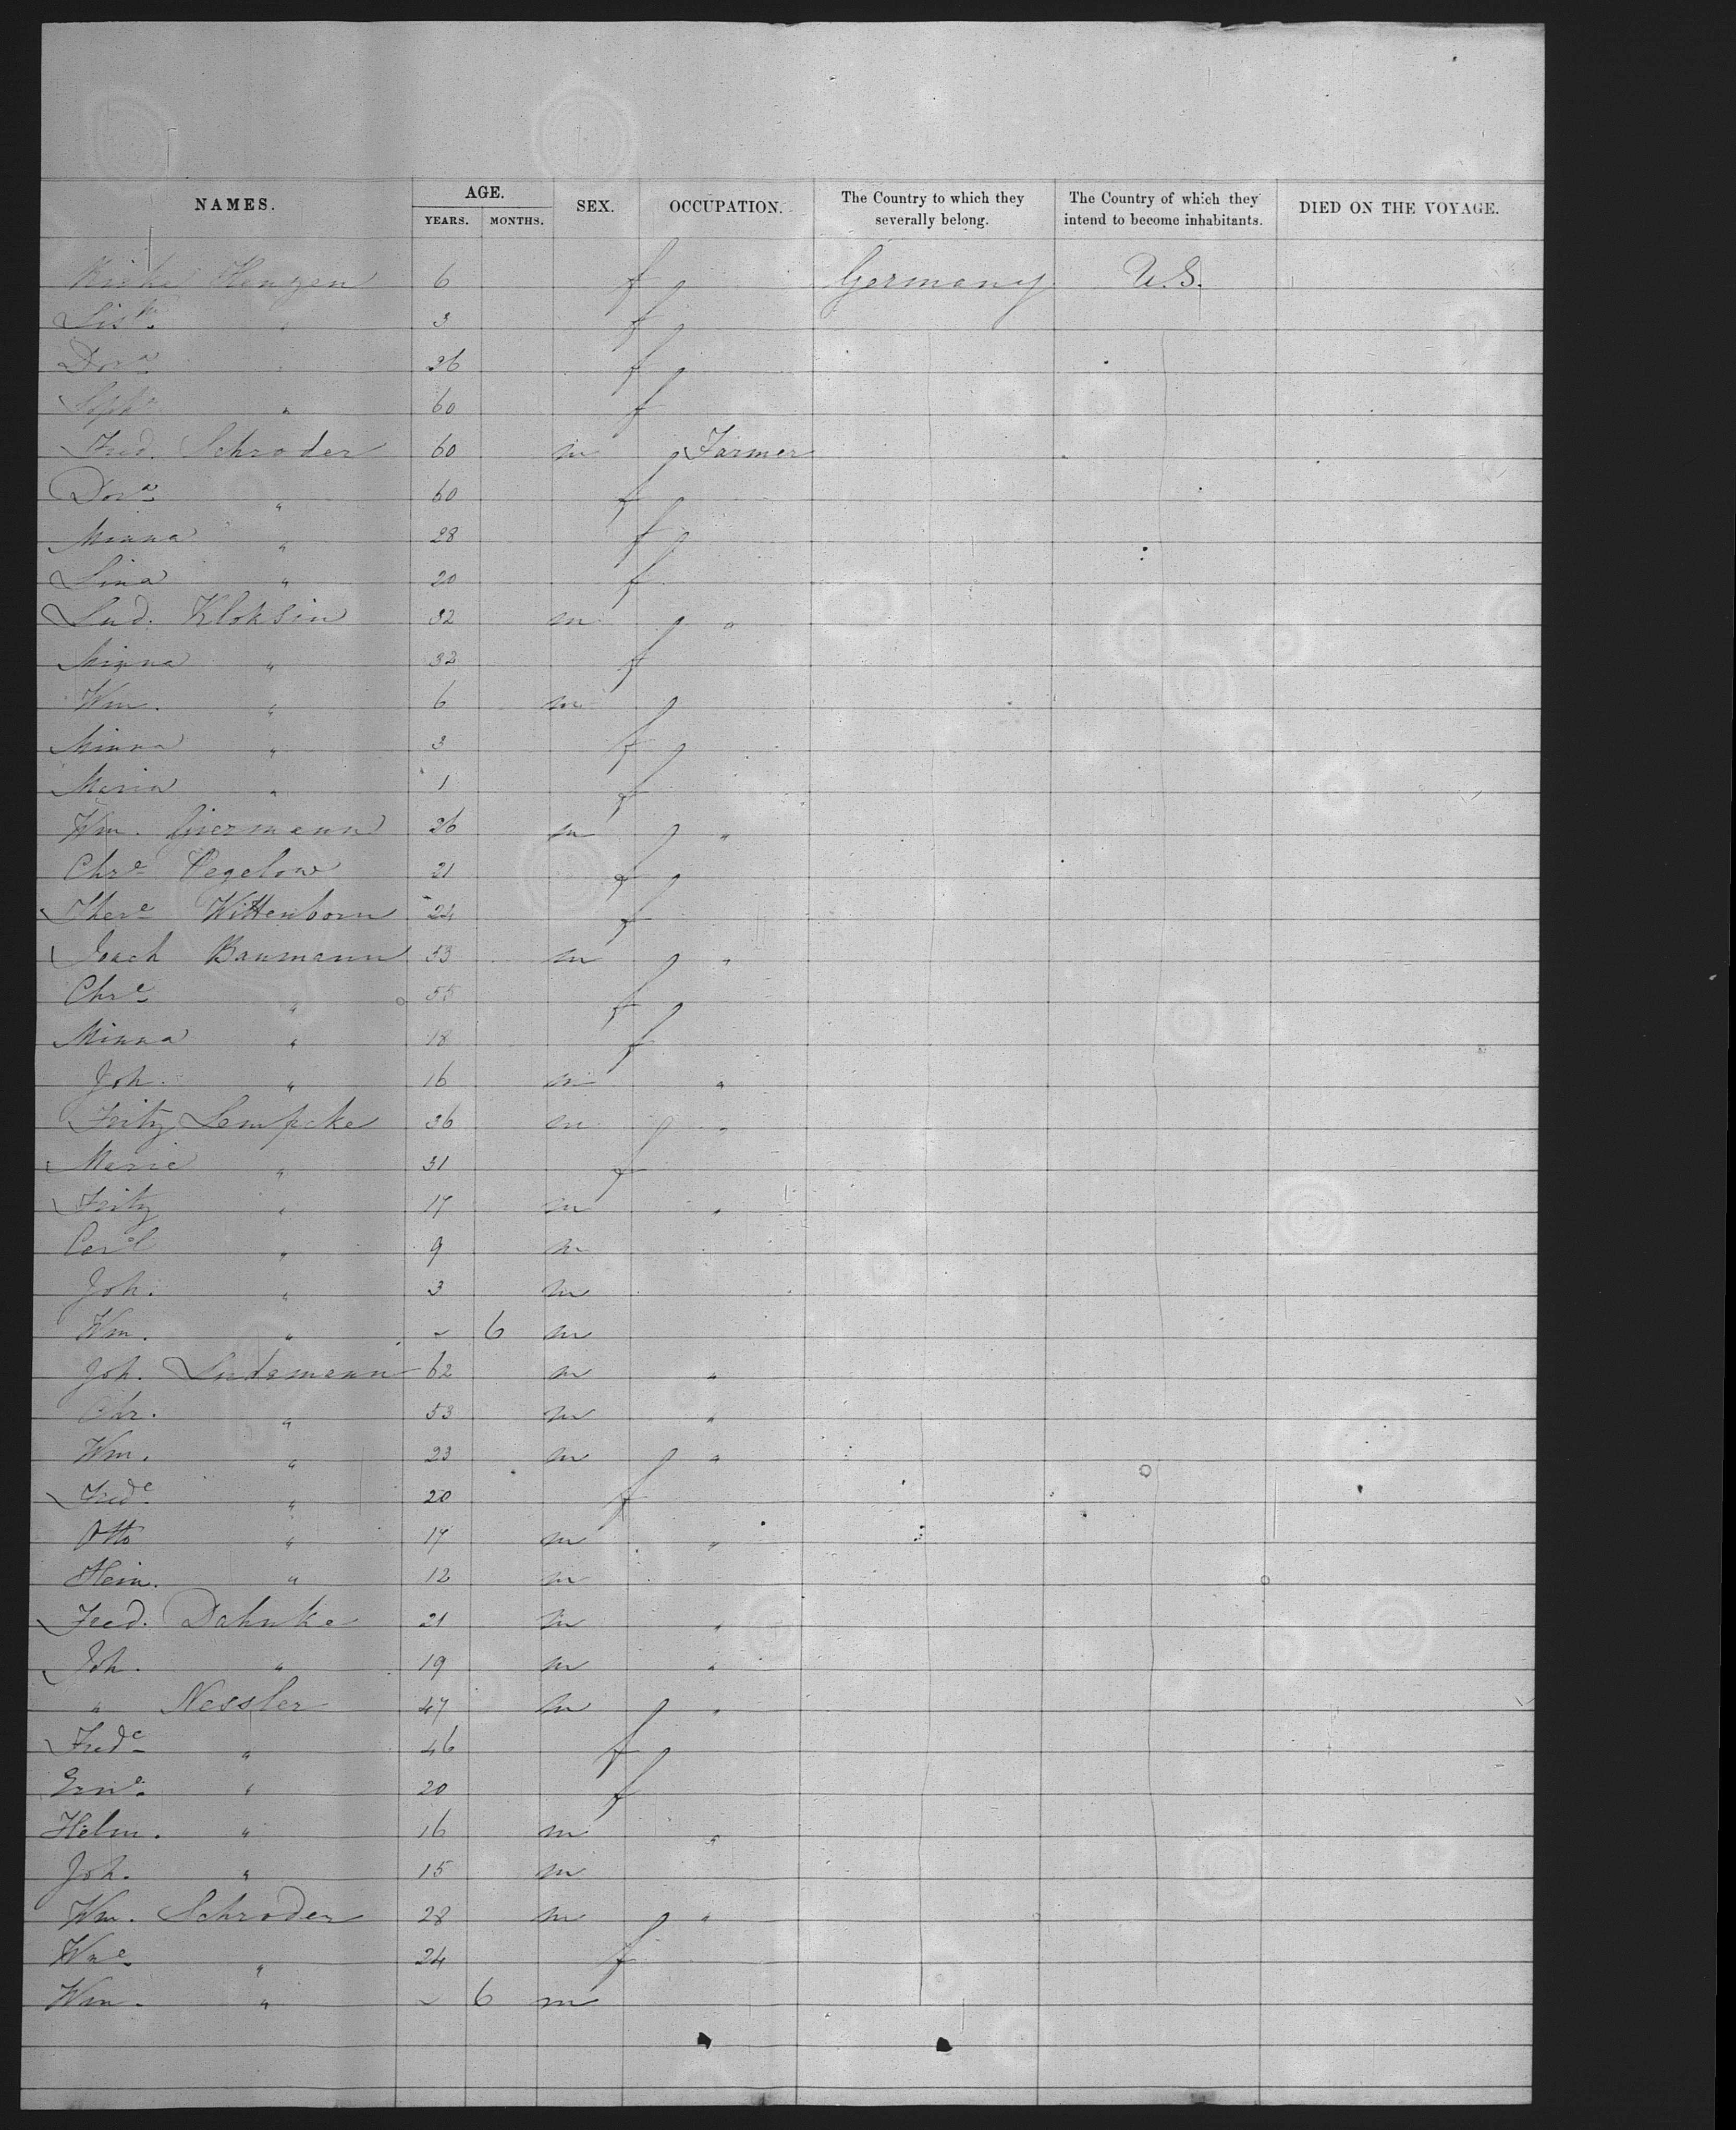 NAMES. AGE. SEX. OCCUPATION. The Country to which they severally belong. The Country of which they intend to become inhabitants. DIED ON THE VOYAGE.
YEARS. MONTHS.
6 f Germany U.S.
" 3 f
Dora " 36 f
Soph " 60 f
Fred. Schroder 60 m Farmer
Dora " 60 f
Minna " 28 f
Lina " 20 f
Lud. Kloksin 32 m "
Minna " 32 f
Wm. " 6 m
Minna " 3 f
Maria " 1 f
Wm. 26 m "
Chre Pegelow 21 f
There Wittenborn 24 f
Joach Baumann 53 m "
Chre " 55 f
Minna " 18 f
Joh. " 16 m "
Fritz Lempcke 36 m "
Marie " 31 f
Fritz " 17 m "
Carl " 9 m
Joh. " 3 m
Wm. " ~ 6 m
Joh. Lindemann 62 m "
Chr. " 53 m "
Wm. " 23 m "
Frede " 20 f
Otto " 17 m "
Hein. " 12 m
Fred. Dahnke 21 m "
Joh. " 19 m "
" Nessler 47 m "
Frede " 46 f
Erne " 20 f
Helm. " 16 m "
Joh. " 15 m
Wm. Schroder 28 m "
Wme " 24 f
Wm. " ~ 6 m